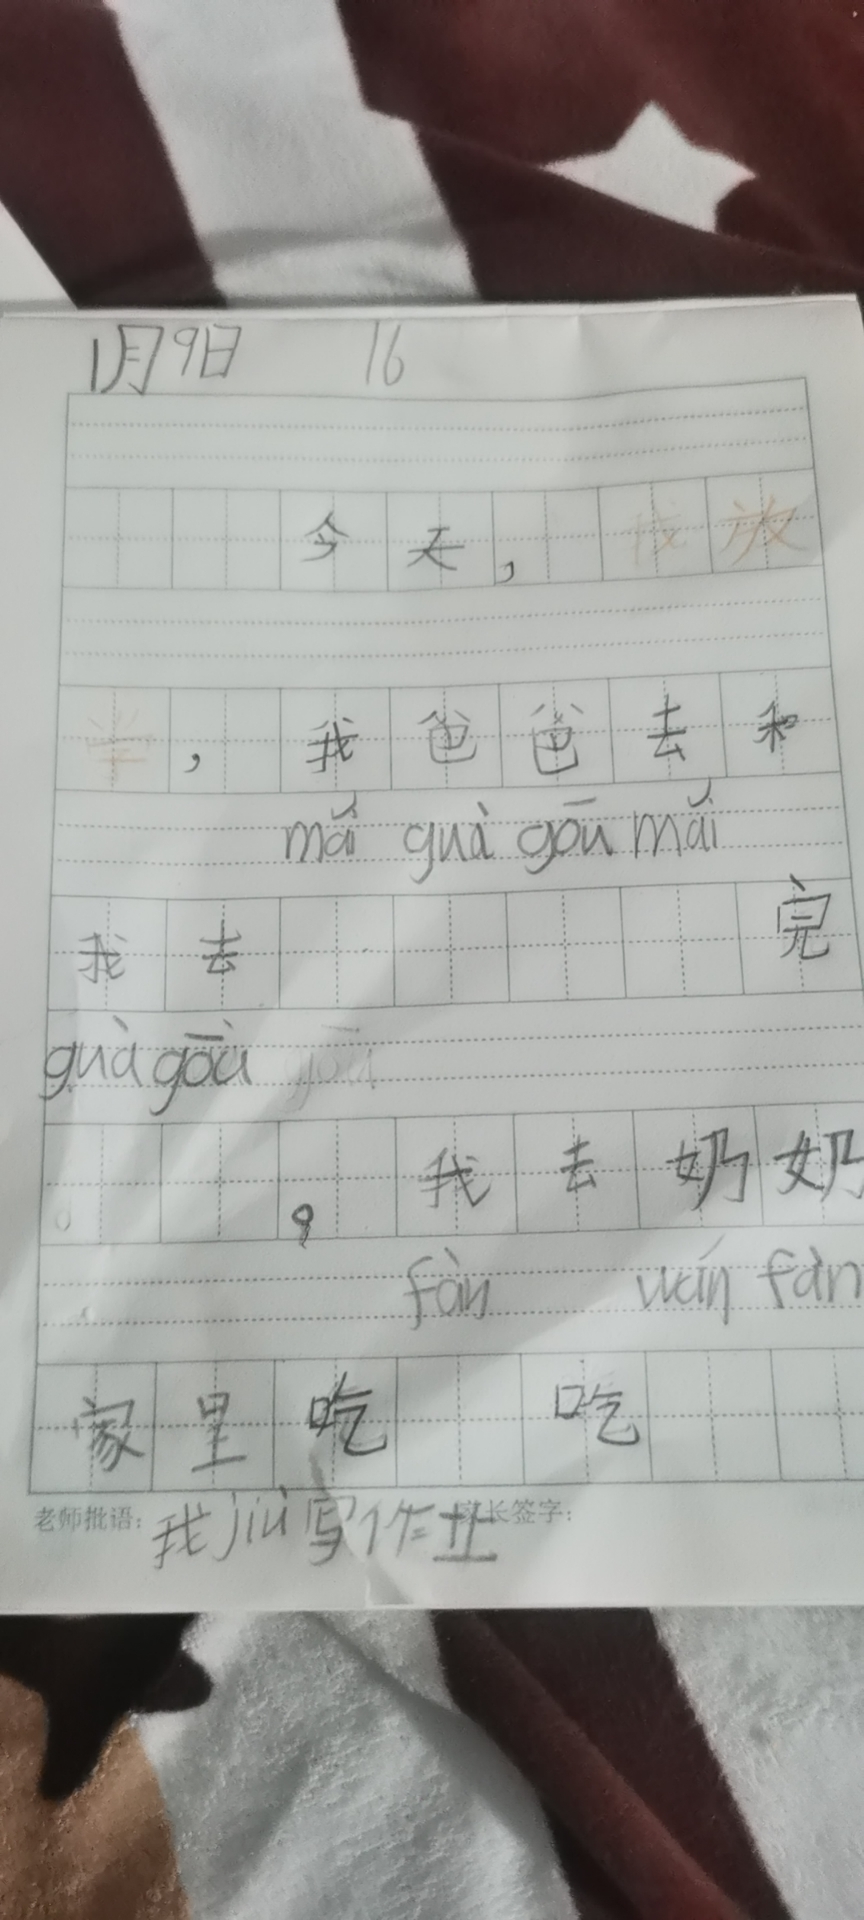 1月9日 16
今天，我放
学，我爸爸去和
mǎi guà gōu mǎi
我去 完
guà gōu gōu
，我去奶奶
fàn wán fàn
家里吃 吃
老师批语：我jiù写作业 家长签字：